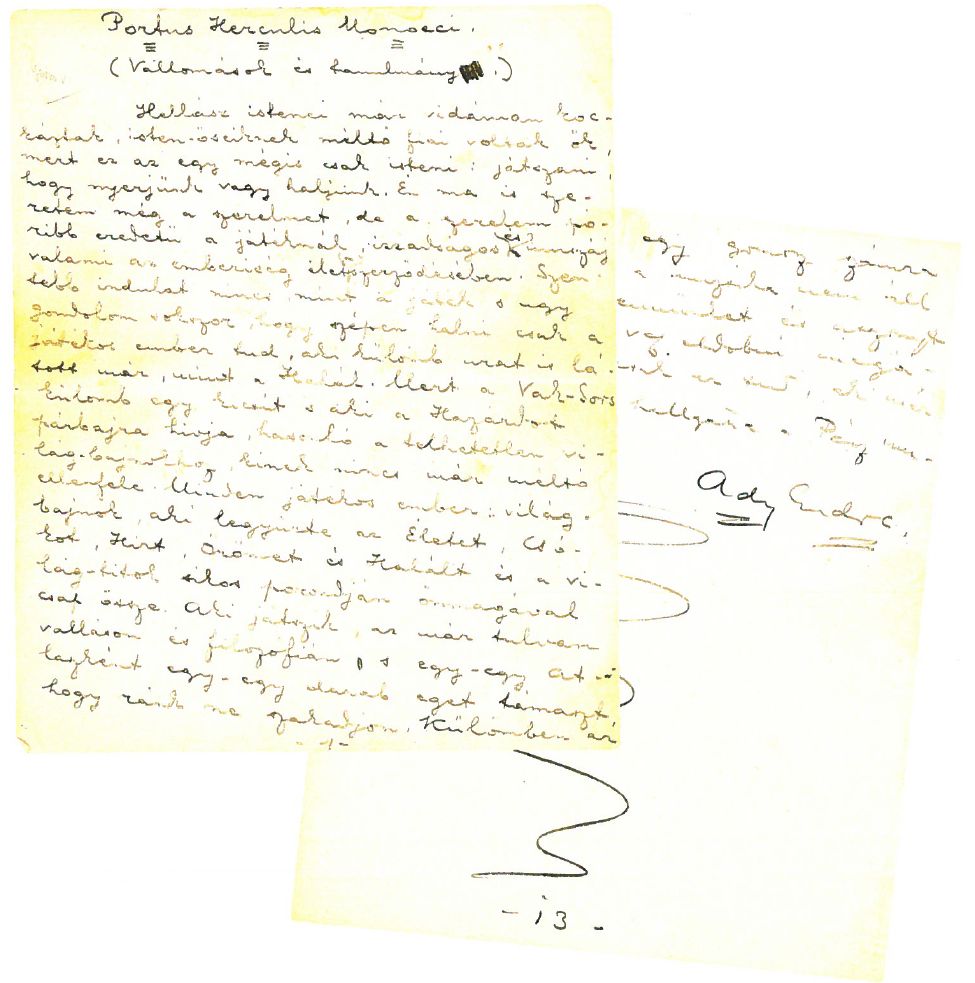 Portus Herculis Monoeci.
(Vallomások és tanulmány.)
Hellász istenei már vidáman koc-
káztak, isten-őseiknek méltó fiai voltak ők,
mert ez az egy mégis csak isteni: játszani,
hogy nyerjünk vagy haljunk. Én ma is sze-
retem még a szerelmet, de a szerelem pó-
ribb eredetü a játéknál, izzadságos és kunszáj
valami az emberiség életszerződésében. Szen-
tebb indulat nincs, mint a játék s ugy
gondolom sokszor, hogy szépen halni csak a
játékos ember tud, aki különb urat is lá-
tott már, mint a Halál. Mert a Vak-Sors
különb egy kicsit s aki a Hazárdot
párbajra hivja, hasonló a telhetetlen vi-
lág-bajnokhoz, kinek nincs már méltó
ellenfele. Minden játékos ember: világ-
bajnok, aki legyürte az Életet, Csó-
kot, Hirt, Örömet és Halált és a vi-
lág-titok sikos porondján önmagával
csap össze. Aki játszik, az már tulvan
valláson és filozófián, s egy-egy at-
laszként egy-egy darab eget támaszt,
hogy ránk ne szakadjon. Külömben az
-1-
egy gonosz számra
a muzsika nem áll
és
vas
hallgatni a
Ady Endre.
- 13 -